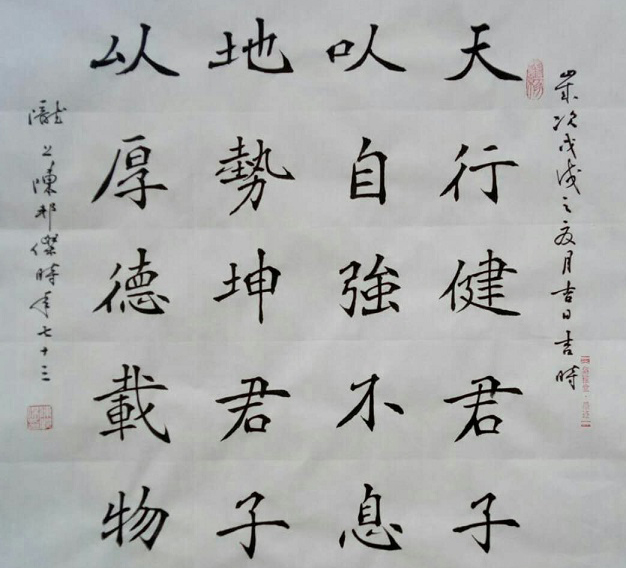 歲次戊戌之夏月吉日吉時
天行健君子
以自強不息
地勢坤君子
以厚德載物
上陳邦傑時年七十三